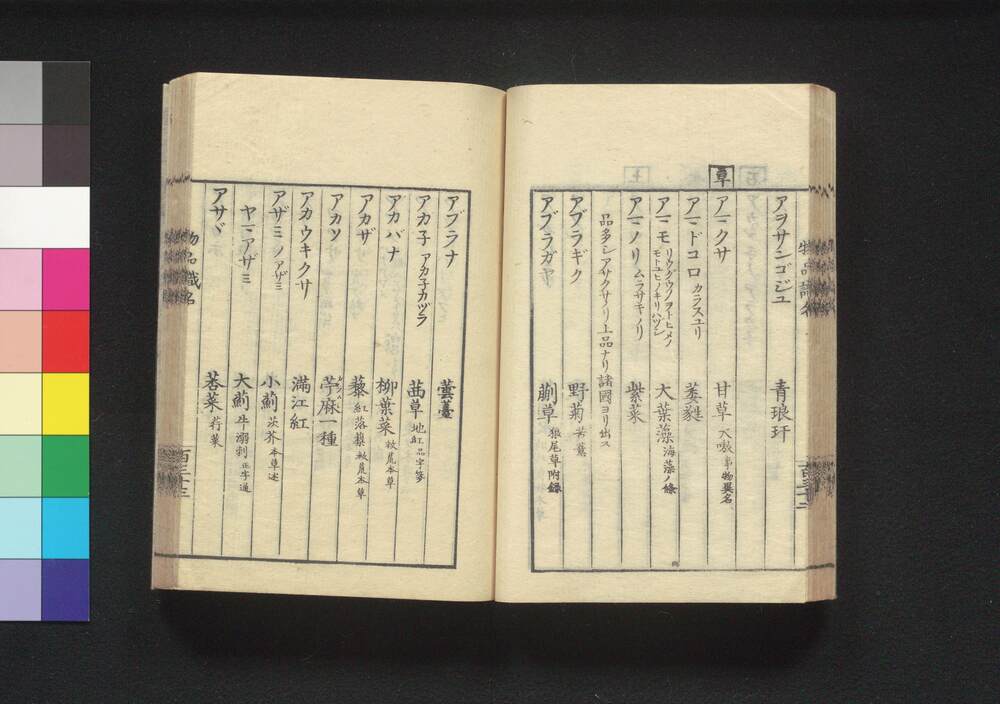 アヲサンゴジユ 青琅玕
草
アマクサ 甘草 大嗷 事物異名
アマドコロ カラスユリ 萎蕤
アマモ リウグウノヲトヒメノモトユヒノキリハヅシ 大葉藻 海藻ノ條
アマノリ ムラサキノリ 紫菜
品多シアサクサノリ上品ナリ諸國ヨリ出ス
アブラギク 野菊 苦薏
アブラガヤ 蒯草 狼尾草附録
アブラナ 蕓薹
アカ子 アカ子カヅラ 茜草 地紅 品字箋
アカバナ 柳葉菜 救荒本草
アカザ 藜 紅落藜 救荒本草
アカソ 苧麻一種
アカウキクサ 満江紅
アザミ ノアザミ 小薊 茨芥 本草述
ヤマアザミ 大薊 牛溺刺 正字通
アサヾ 莕菜 荇菜
物品識名
百三十三